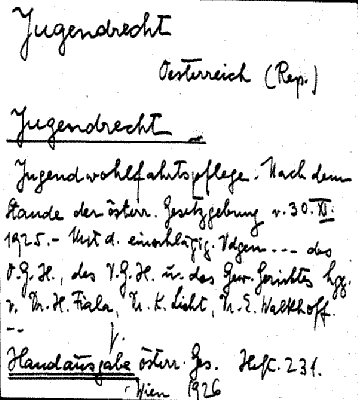 Jugendrecht
Oesterreich (Rep.)
Jugendrecht
Jugendwohlfahrtspflege. Nach dem
Stande der österr. Gesetzgebung v. 30. XI.
1925.- Mit d. einschlägig. Vdgen ... des
O.G.H., des V.G.H. u. des Gew. Gerichtes hgg.
v. Dr. H. Fiala, Dr. K. Licht, Dr. E. Walkhoff.
--
Handausgabe österr. Ges. Heft. 231.
Wien 1926